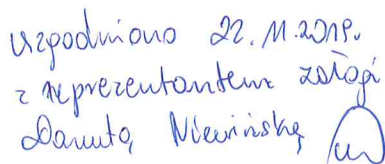 uzgodniono 22.11.2019r.
z reprezentantem załogi
Danutą Niewińską